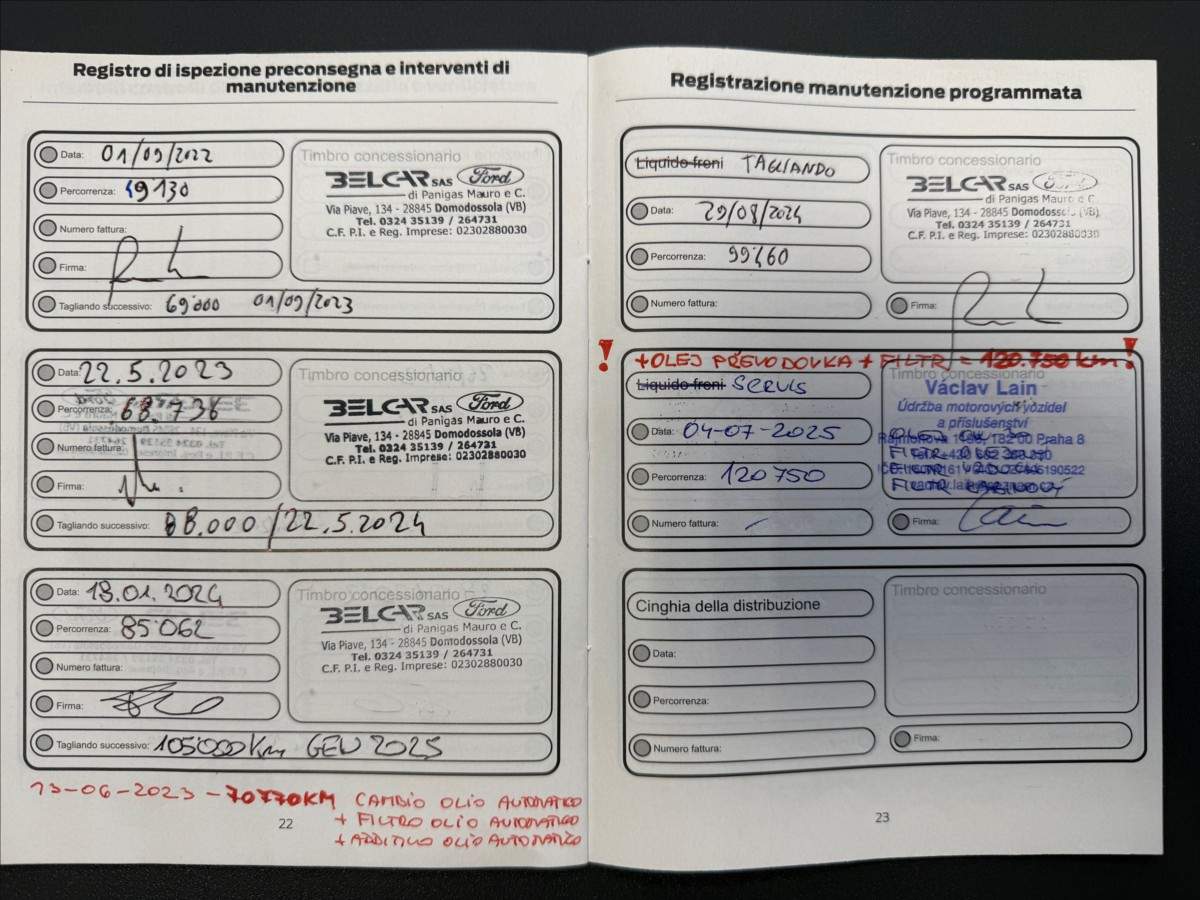 Registro di ispezione preconsegna e interventi di
manutenzione
Data: 01/09/2022
Percorrenza: 49130
Numero fattura:
Firma:
Tagliando successivo: 69000 01/09/2023
Timbro concessionario
BELCAR SAS Ford
di Panigas Mauro e C.
Via Piave, 134 - 28845 Domodossola (VB)
Tel. 0324 35139 / 264731
C.F. P.I. e Reg. Imprese: 02302880030
Data: 22.5.2023
Percorrenza: 68736
Numero fattura:
Firma:
Tagliando successivo: 88.000 / 22.5.2024
Timbro concessionario
BELCAR SAS Ford
di Panigas Mauro e C.
Via Piave, 134 - 28845 Domodossola (VB)
Tel. 0324 35139 / 264731
C.F. P.I. e Reg. Imprese: 02302880030
Data: 18.01.2024
Percorrenza: 85062
Numero fattura:
Firma:
Tagliando successivo: 105000 Km GEN 2025
Timbro concessionario
BELCAR SAS Ford
di Panigas Mauro e C.
Via Piave, 134 - 28845 Domodossola (VB)
Tel. 0324 35139 / 264731
C.F. P.I. e Reg. Imprese: 02302880030
13-06-2023 - 70770KM CAMBIO OLIO AUTOMATICO
+ FILTRO OLIO AUTOMATICO
+ ADDITIVO OLIO AUTOMATICO
22
Registrazione manutenzione programmata
Liquido freni TAGLIANDO
Data: 29/08/2024
Percorrenza: 99460
Numero fattura:
Timbro concessionario
BELCAR SAS Ford
di Panigas Mauro e C.
Via Piave, 134 - 28845 Domodossola (VB)
Tel. 0324 35139 / 264731
C.F. P.I. e Reg. Imprese: 02302880030
Firma:
! +OLEJ PŘEVODOVKA + FILTR = 120.750 km !
Liquido freni SERVIS
Data: 04-07-2025
Percorrenza: 120750
Numero fattura: /
Timbro concessionario
Václav Lain
Údržba motorových vozidel
a příslušenství
182 00 Praha 8
Firma: Lain
Cinghia della distribuzione
Data:
Percorrenza:
Numero fattura:
Timbro concessionario
Firma:
23